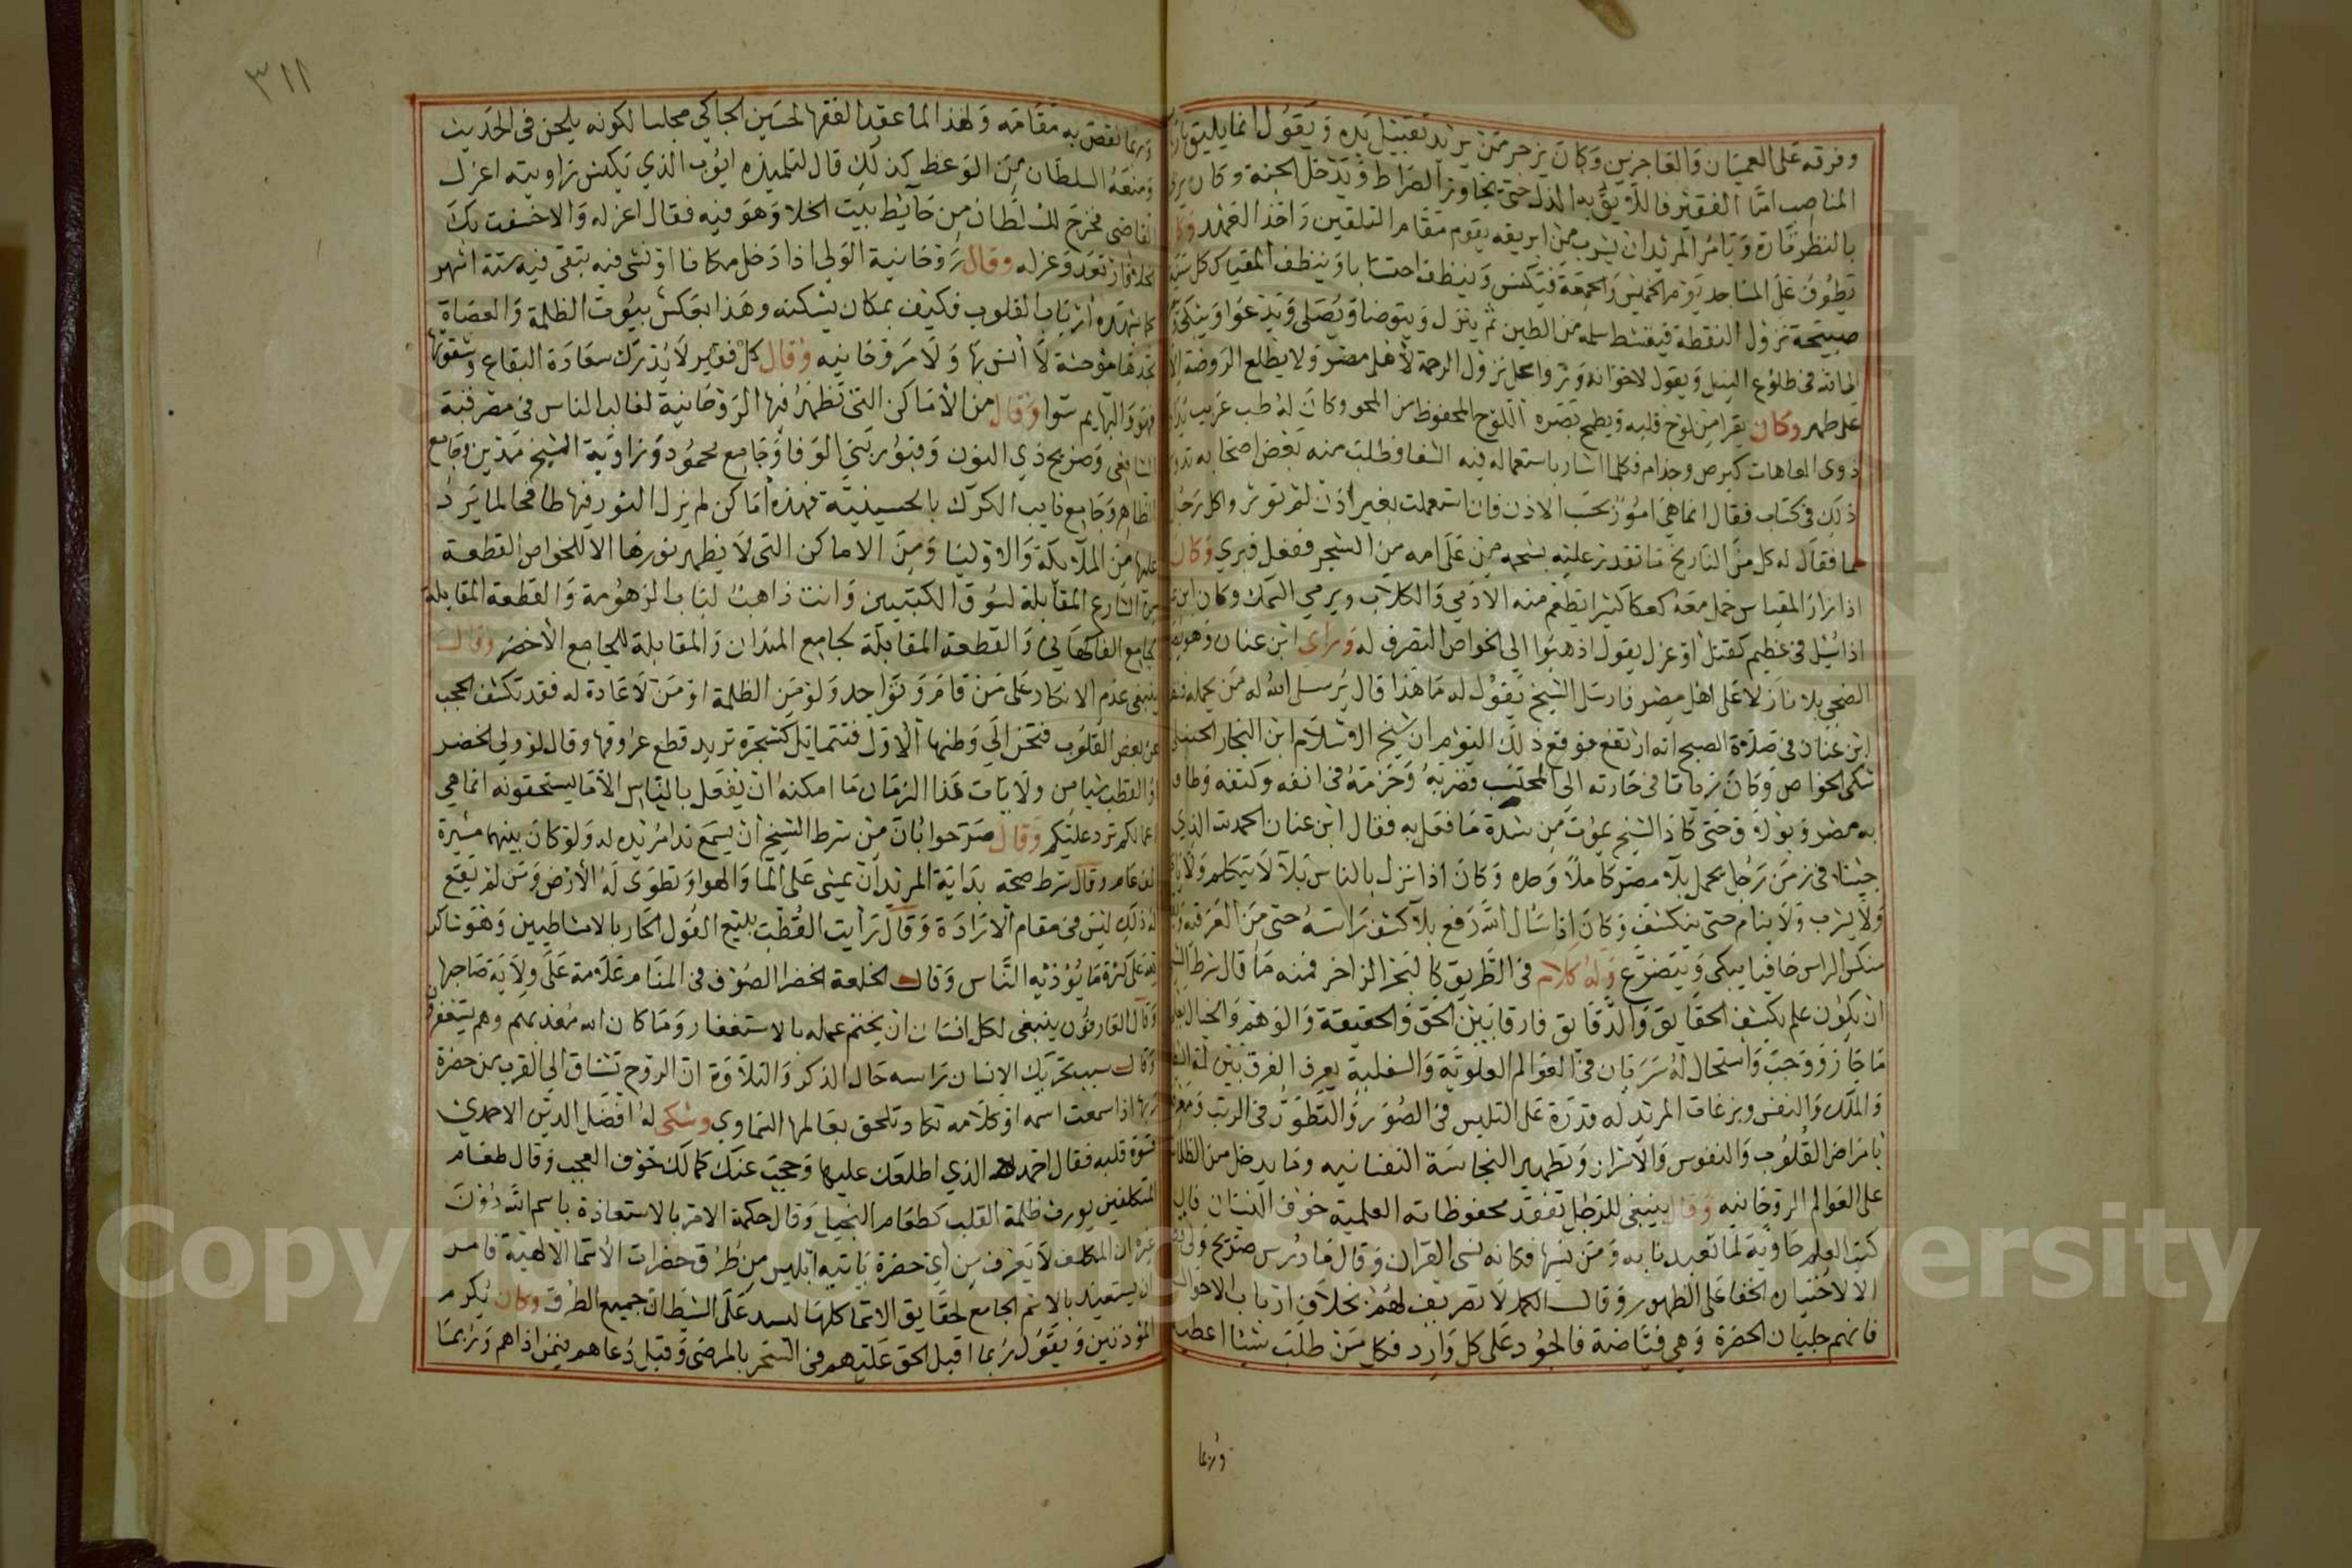 وفرقه على العميان والعاجزين وكان يزجر من يريد تقبيل يده ويقول انما يليق
المناصب اما الفقير فاللايق به الذل حتى يجاوز الصراط ويدخل الجنة وكان
بالنظر تارة ويامر المريد ان يشرب من ابريقه يقوم مقام التلقين واخذ العهد
يطوف على المساجد يوم الخميس والجمعة فيكنس وينظف احتسابا وينظف المقياس كل
صبيحة نزول النقطة فيقشط سلمه من الطين ثم ينزل ويتوضا ويصلي ويدعوا ويبكي
في طلوع النيل ويقول لاخوانه نزول الرحمة لاهل مصر ولا يطلع الروضة الا
على طهر وكان يقرا من لوح قلبه ويطمح بصره اللوح المحفوظ من المحو وكان له طب غريب
ذوي العاهات كبرص وجذام فكلما اشار باستعماله فيه الشفا وطلب منه بعض اصحابه
ذلك في كتاب فقال انما هي امور بحسب الاذن فان استعملت بغير اذن لم توثر واكل رجل
سما فقال له كل من النارنج ما تقدر عليه بشحمه من على امه من الشجر ففعل فبري وكان
اذا زار المقياس حمل معه كعكا كثيرا يطعم منه الادمي والكلاب ويرمي السمك وكان ابن
اذا سئل في عظيم كقتل او عزل يقول اذهبوا الى الخواص التصرف له وراي ابن عنان وهو
الضحى بلا نازلا على اهل مصر فارسل الشيخ يقول له ما هذا قال يرسل الله له من يحمله
ابن عنان في صلاة الصبح انه ارتفع فوقع ذلك اليوم ان شيخ الاسلام ابن النجار الحنبلي
شكى الخواص وكان زياتا في حارته الى المحتسب فضربه وخزمه في انفه وكتفه وطاف
به مصر وبولاق حتى كاد الشيخ يموت من شدة ما فعل به فقال ابن عنان الحمد لله الذي
جينا في زمن رجل يحمل بلا مصر كاملا وحده وكان اذا نزل بالناس بلا لا يتكلم ولا
ولا يشرب ولا ينام حتى ينكشف وكان اذا سال الله رفع بلا كشف راسه حتى من العرقيه
منكس الراس حافيا يبكي ويتضرع وله كلام في الطريق كالبحر الزاخر فمنه ما قال شرط
ان يكون علم بكشف الحقايق والدقايق فارقا بين الحق والحقيقة والوهم والخيال
ما جاز ووجب واستحال له سريان في العوالم العلوية والسفلية يعرف الفرق بين لمة
والملك والنفس ونزغات المريد له قدرة على التلبس في الصور والتطور في الرتب
بامراض القلوب والنفوس والاسرار وتطهير النجاسة النفسانيه وما يدخل من الظلام
على العوالم الروحانيه وقال ينبغي للرجل تفقد محفوظاته العلمية خوف النسيان فان
كتب العلم حاوية لما تعبدنا به ومن نسيها فكانه نسى القران وقال ما دُرس ضريح ولي
الا لاختياره الخفا على الظهور وقال الكمل لا تصريف لهم بخلاف ارباب الاحوال
فانهم حلبيان الحضرة وهي فياضة فالجود على كل وارد فكل من طلب شيئا اعطيه
وربما
٣١١
وربما نقص به مقامه ولهذا لما عقد الفقها لحسين الجاكي مجلسا لكونه يلحن في الحديث
ومنعه السلطان من الوعظ كذلك قال لتلميذه ايوب الذي يكنس زاويته اعزل
القاضي فخرج للسلطان من حايط بيت الخلا وهو فيه فقال اعزله والا خسفت بك
فارتعد وعزله وقال روحانية الولي اذا دخل مكانا او مشى فيه تبقى فيه ستة اشهر
كما شهده ارباب القلوب فكيف بمكان يسكنه وهذا بعكس بيوت الظلمة والعصاة
تجدها موحشة لا انس بها ولا روحانيه وقال كل فقير لا يدرك سعادة البقاع وشقوتها
فهو والبهايم سوا وقال من الاماكن التي تظهر فيها الروحانية لغالب الناس في مصر قبة
الشافعي وضريح ذي النون وقبور بني الوفا وجامع محمود وزاوية الشيخ مدين وجامع
الظاهر وجامع نايب الكرك بالحسينية فهذه اماكن لم يزل النور فيها طافحا لما يرد
عليها من الملايكة والاوليا ومن الاماكن التي لا يظهر نورها الا للخواص القطعة
من الشارع المقابلة لسوق الكتبيين وانت ذاهب لباب الزهومة والقطعة المقابلة
لجامع الفاكهاني والقطعة المقابلة لجامع الميدان والمقابلة للجامع الاخضر وقال
ينبغي عدم الانكار على من قام وتواجد ولو من الظلمة او من لا عادة له فقد تكشف الحجب
عن بعض القلوب فتحن الى وطنها الاول فتتمايل كشجرة تريد قطع عروقها وقال لو ولي الخضر
او القطب شيا من ولايات هذا الزمان ما امكنه ان يفعل بالناس الا ما يستحقونه انما هي
اعمالكم ترد عليكم وقال صرحوا بان من شرط الشيخ ان يسمع ندا مريده له ولو كان بينهما مسيرة
الف عام وقال شرط صحة بداية المريد ان يمشي على الما والهوا وتطوى له الارض ومن لم يقع
له ذلك ليس في مقام الارادة وقال رايت القطب يبيع الفول الحار بالامشاطيين وهو شاكر
لله على كثرة ما يؤذيه الناس وقال الخلعة الخضرا الصوف في المنام علامة على ولاية صاحبها
وقال العارفون ينبغي لكل انسان ان يختم عمله بالاستغفار وما كان الله معذبهم وهم يستغفرون
وقال سبب تحريك الانسان راسه حال الذكر والتلاوة ان الروح تشتاق الى القرب من حضرة
ربها اذا سمعت اسمه او كلامه تكاد تلحق بعالمها السماوي وشكى له افضل الدين الاحمدي
قسوة قلبه فقال احمد الله الذي اطلعك عليها وحجب عنك كمالك خوف العجب وقال طعام
المتكلفين يورث ظلمة القلب كطعام البخيل وقال حكمة الامر بالاستعاذة باسم الله دون
غيره ان المكلف لا يعرف من اي حضرة ياتيه ابليس من طرق حضرات الاسما الالهية فامر
ان يستعيذ بالاسم الجامع لحقايق الاسما كلها ليسد على الشيطان جميع الطرق وكان يكرم
المؤذنين ويقول ربما اقبل الحق عليهم في السحر بالمرضى وقبل دعاهم فيمن اذاهم وربما
Copyright © King Saud University